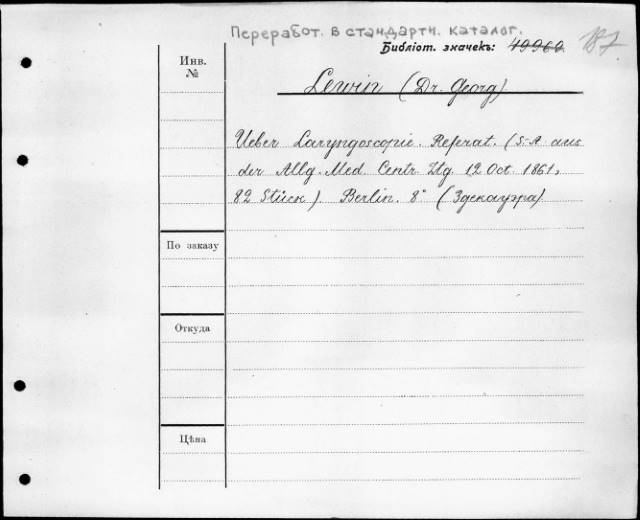 Переработ. в стандартн. каталог.
Библіот. значекъ: 49960. 187
Инв. №
Lewin (Dr. Georg)
Ueber Laryngoscopie. Referat. (S-A aus
der Allg. Med. Centr. Ztg. 12 Oct. 1861,
82 Stück). Berlin. 8° (Здекауэра)
По заказу
Откуда
Цѣна